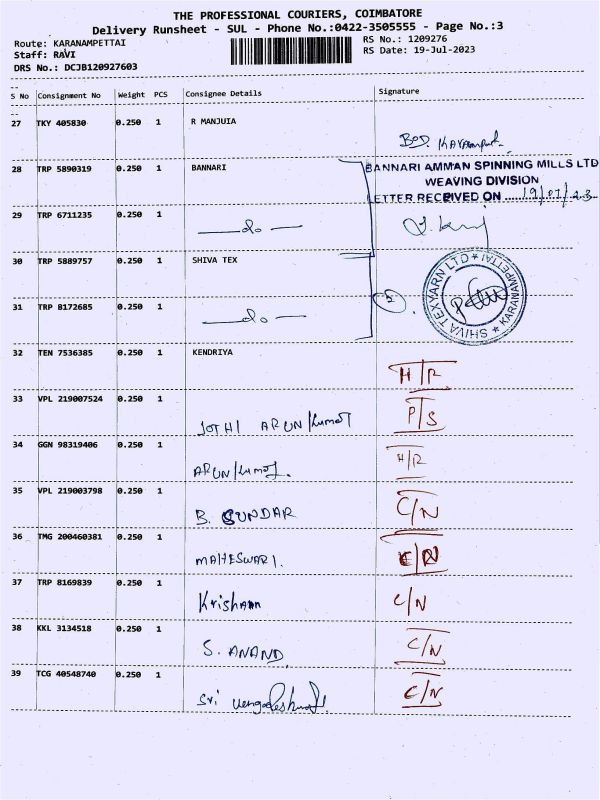 THE PROFESSIONAL COURIERS, COIMBATORE
Delivery Runsheet - SUL - Phone No.:0422-3505555 - Page No.:3
Route: KARANAMPETTAI RS No.: 1209276
Staff: RAVI RS Date: 19-Jul-2023
DRS No.: DCJB120927603
S No Consignment No Weight PCS Consignee Details Signature
27 TKY 405830 0.250 1 R MANJUIA
28 TRP 5890319 0.250 1 BANNARI BANNARI AMMAN SPINNING MILLS LTD
WEAVING DIVISION
LETTER RECEIVED ON ......19/07/23
29 TRP 6711235 0.250 1 —do—
30 TRP 5889757 0.250 1 SHIVA TEX
SHIVA TEXYARN LTD ★ KARANAMPETTAI ★
31 TRP 8172685 0.250 1 —do—
32 TEN 7536385 0.250 1 KENDRIYA H/R
33 VPL 219007524 0.250 1 JOTHI ARUN/kumar P/S
34 GGN 98319406 0.250 1 ARUN/kumar. H/R
35 VPL 219003798 0.250 1 B. SUNDAR C/N
36 TMG 200460381 0.250 1 MAHESWARI. C/N
37 TRP 8169839 0.250 1 Krishann C/N
38 KKL 3134518 0.250 1 S. ANAND C/N
39 TCG 40548740 0.250 1 Sri C/N